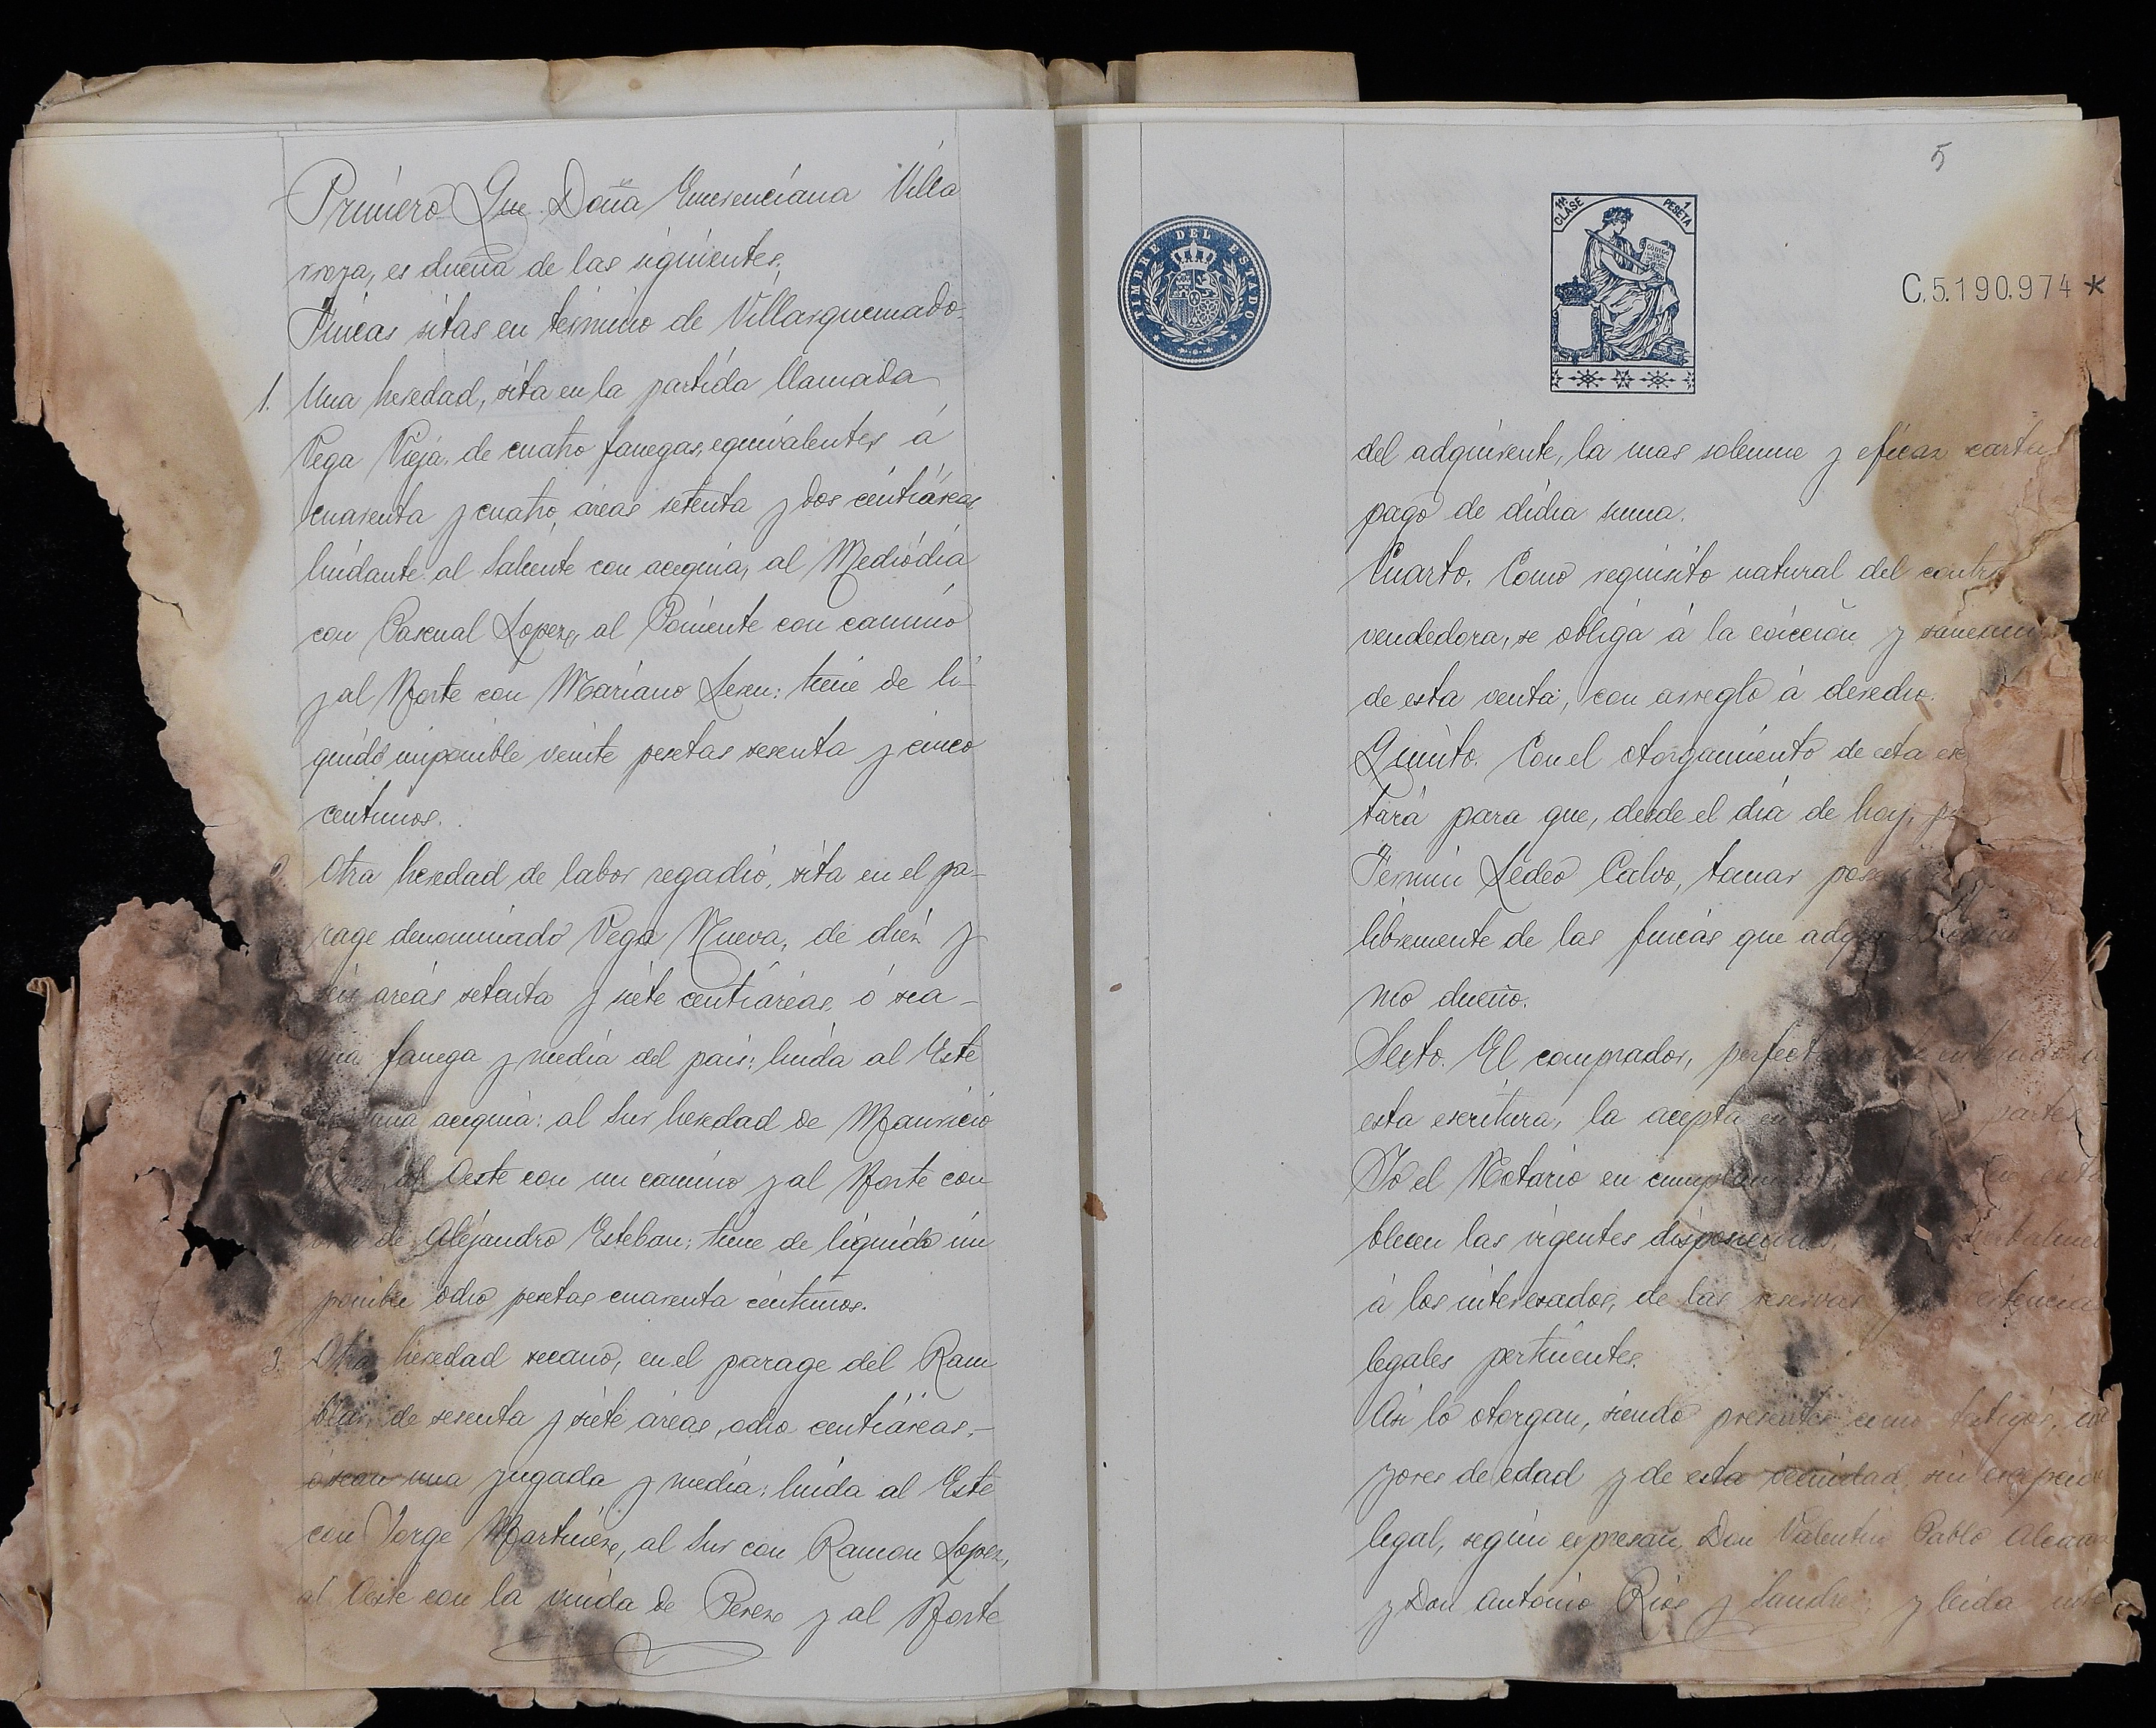 Primero Que Doña Emerenciana Villa
rroya, es dueña de las siguientes,
Fincas sitas en termino de Villarquemado-
1. Una heredad, sita en la partida llamada
Vega Vieja, de cuatro fanegas, equivalentes á
cuarenta y cuatro áreas setenta y dos centiáreas
lindante al Saliente con acequia, al Mediodia
con Pascual Lopez, al Poniente con camino
y al Norte con Mariano : tiene de li-
quido imponible veinte pesetas sesenta y cinco
centimos.
Otra heredad de labor regadio, sita en el pa-
rage denominado Vega Nueva, de diez y
seis areas setenta y siete centiáreas, ó sea-
una fanega y media del pais: linda al Este
una acequia: al Sur heredad de Mauricio
al Oeste con un camino y al Norte con
de Alejandro Esteban: tiene de liquido im
ponible ocho pesetas cuarenta céntimos.
3. Otra heredad secano, en el parage del Ram
blar, de sesenta y siete áreas, ocho centiáreas,-
ó sean una yugada y media: linda al Este
con Jorge Martinez, al Sur con Ramon Lopez,
al Oeste con la viuda de Perez y al Norte
5
TIMBRE DEL ESTADO
11ª CLASE
1 PESETA
C.5.190.974*
del adquirente, la mas solemne y eficaz carta
pago de dicha suma.
Cuarto. Como requisito natural del contr
vendedora, se obliga á la evicción y saneami
de esta venta, con arreglo á derecho.
Quinto. Con el otorgamiento de esta es
tará para que, desde el dia de hoy, p
Fermin Calvo, tomar pose
libremente de las fincas que adq
mo dueño.
Sexto. El comprador, perfectamente enterado
esta escritura, la acepta en partes
Yo el Notario en cumplim esta
blecen las vigentes disposiciones, verbalmen
á los interesados, de las reservas y
legales pertinentes.
Asi lo otorgan, siendo presentes como testigos,
yores de edad y de esta vecindad, sin excepcio
legal, según expresan, Don Valentin Pablo
y Don Antonio Rios y ; y leida